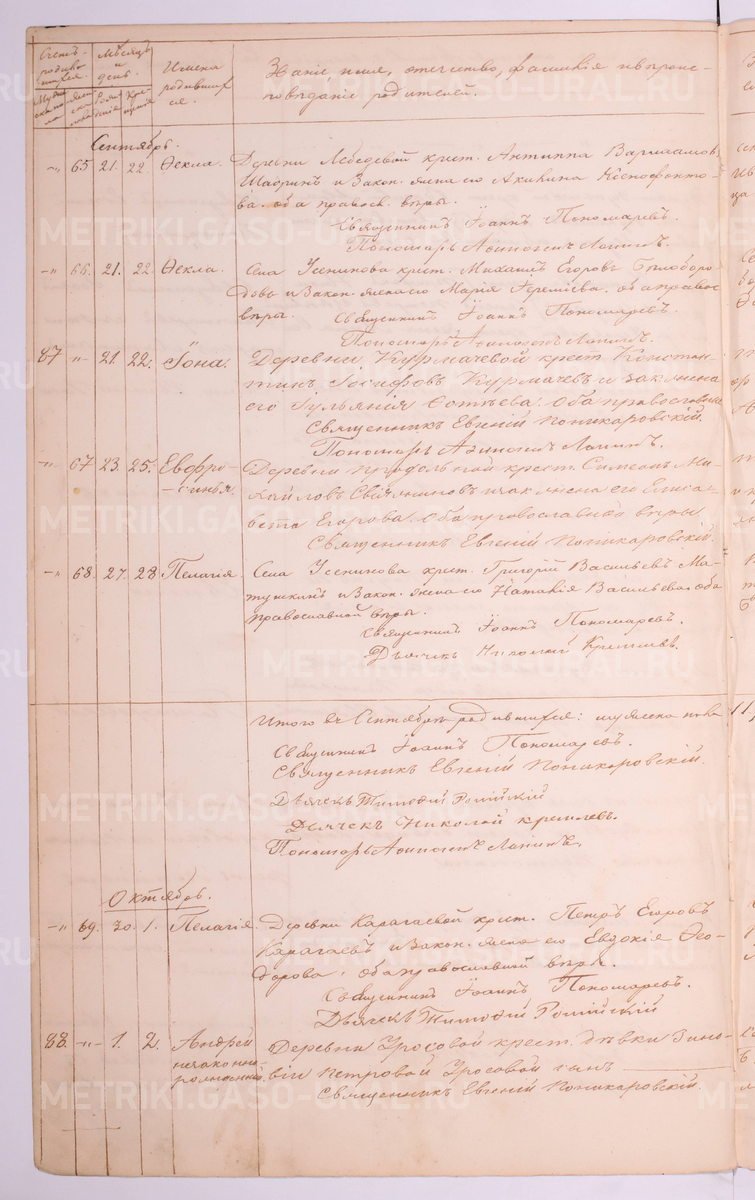 Счетъ родившихся.
Мѣсяцъ и день.
Имена родившихся.
Званіе, имя, отчество, фамилія и вѣроис-
повѣданіе родителей.
Рожденія
Крещенія
Сентябрь.
-„ 65 21. 22. Ѳекла. Деревни Лебедевой крест. Антиппа Варлаамовъ
Шабринъ и закон. жена его Акилина Ксенофонто-
ва. оба правосл. вѣры.
Священникъ Іоаннъ Пономаревъ.
Пономарь Лапинъ.
-„ 66. 21. 22. Ѳекла. Села Усенинова крест. Михаилъ Егоровъ Бѣлоборо-
довъ и закон. жена его Марія Еремѣева. оба правос
вѣры.
Священникъ Іоаннъ Пономаревъ.
Пономарь Лапинъ.
87 „ 21 22. Іона. Деревни Курмачевой крест. Констан-
тинъ Іосифовъ Курмачевъ и зак. жена
его Іульянія Фотѣева. Оба православнаго
Священникъ Евгеній Поникаровскій.
Пономарь Лапинъ.
-„ 67 23. 25. Евфро-
синья. Деревни крест. Симеонъ Ми-
хайловъ и зак. жена его Елиса-
вета Егорова. Оба православной вѣры
Священникъ Евгеній Поникаровскій.
-„ 68. 27. 28 Пелагія Села Усенинова крест. Григорій Васильевъ Ма-
тушкинъ и закон. жена его Наталія Васильева. оба
православной вѣры.
Священникъ Іоаннъ Пономаревъ.
Дьячекъ Николай
Итого въ Сентябрѣ родившихся: мужеска пола
Священникъ Іоаннъ Пономаревъ.
Священникъ Евгеній Поникаровскій.
Дьячекъ Тимофій
Дьячекъ Николай
Пономарь Лапинъ.
Октябрь.
-„ 69. 30. 1. Пелагія. Деревни Карагаевой крест. Петръ Егоровъ
Карагаевъ и закон. жена его Евдокія Ѳео-
дорова. оба православной вѣры.
Священникъ Іоаннъ Пономаревъ.
Дьячекъ Тимофій
88. -„- 1. 2. Андрей
незаконно-
рожденный. Деревни Уросовой крест. дѣвки Зино-
віи Петровой Уросовой сынъ
Священникъ Евгеній Поникаровскій.
METRIKI.GASO-URAL.RU